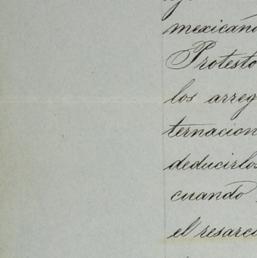 mexicano
Protesto
los arreg
ternacion
deducirlos
cuando
el resarci